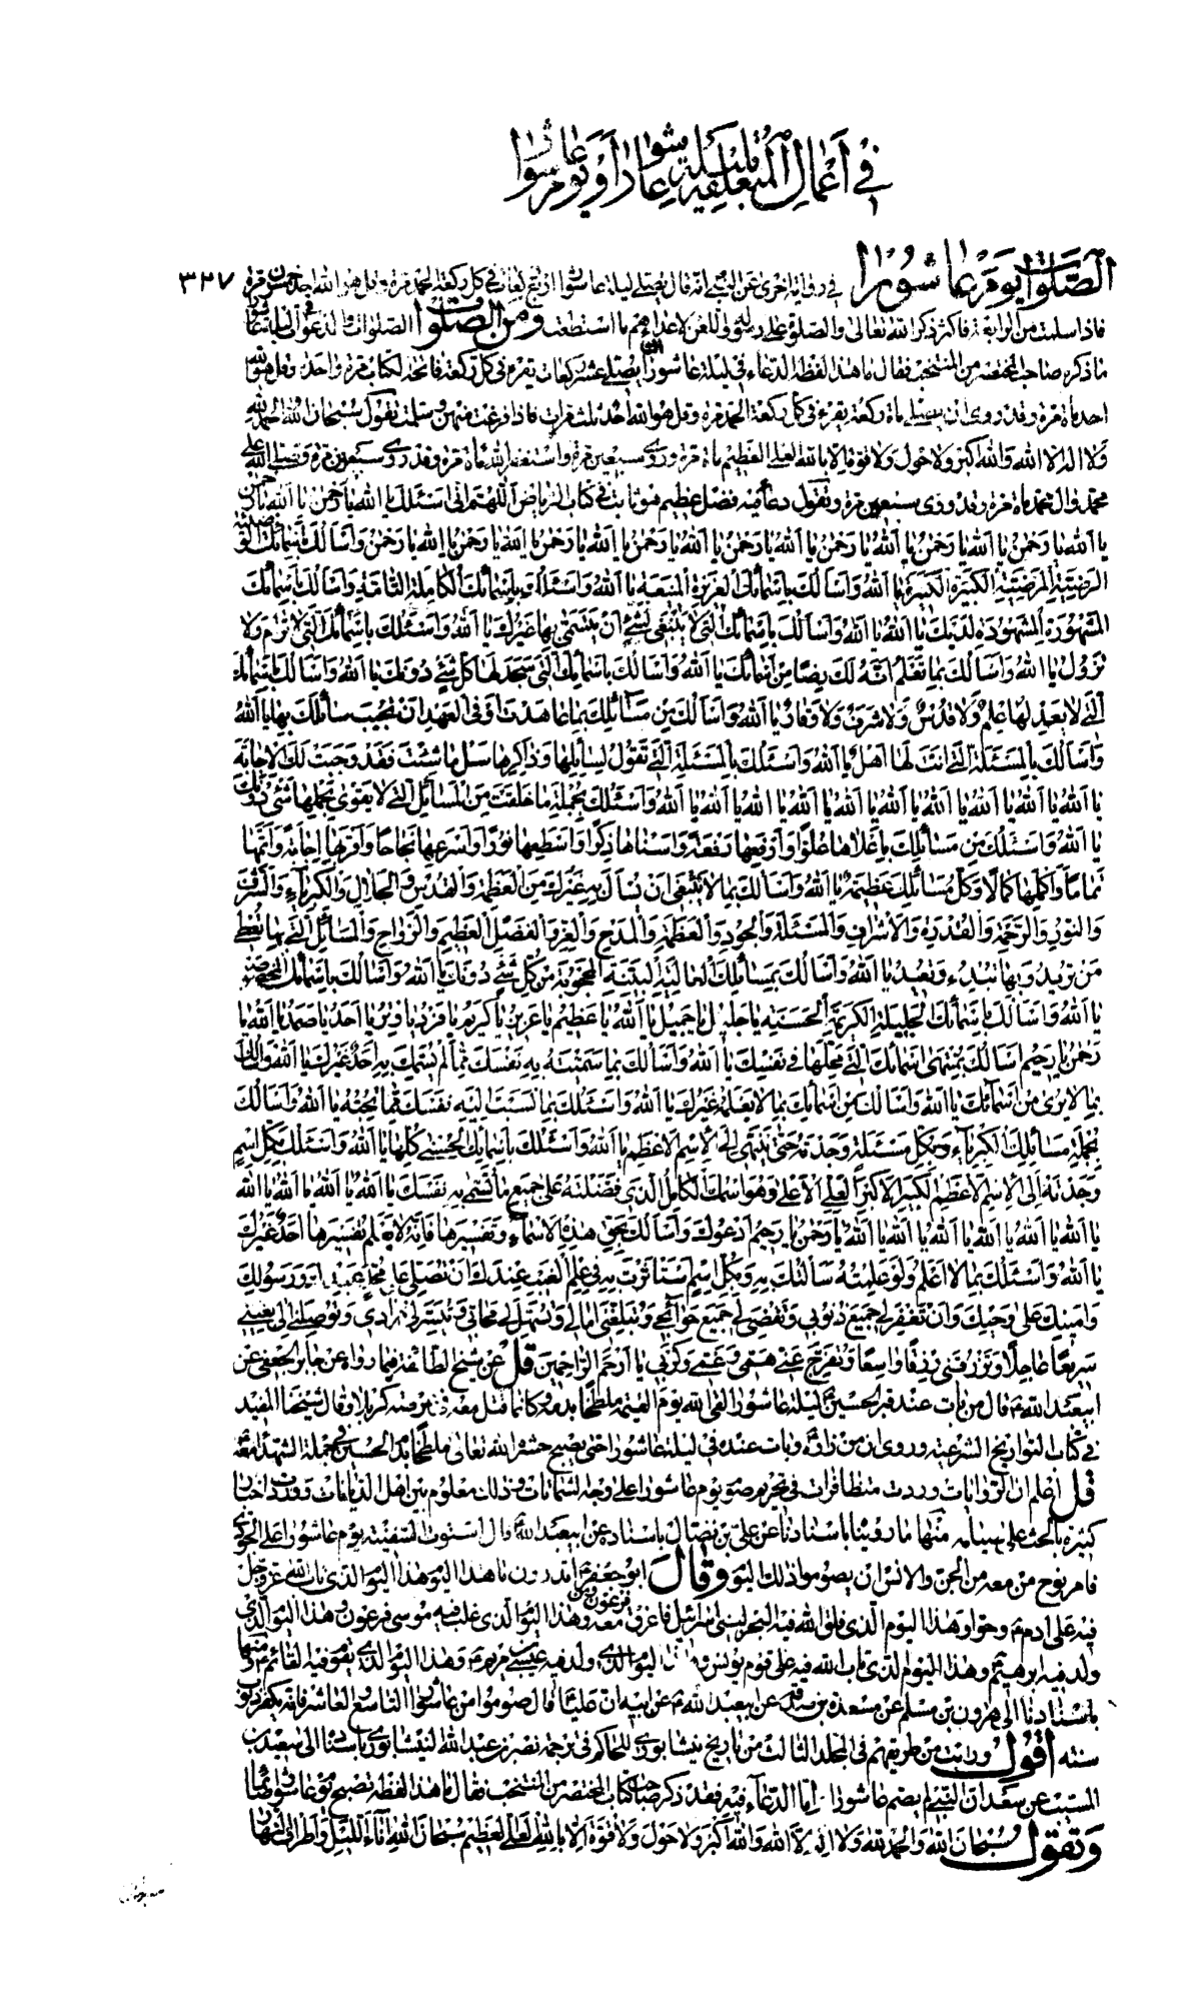 في أعمال المتعلقة بليلة عاشورا أو يوم عاشورا
الصلوات يوم عاشورا في رواية أخرى عن النبي انه قال يصلي ليلة عاشورا اربع ركعات في كل ركعة الحمد مرة وقل هو الله احد خمسون مرة ٣٢٧
فاذا سلمت من الرابعة فاكثر ذكر الله تعالى والصلوة على رسوله واللعن لاعدائهم ما استطعت ومن الصلوات الصلوات والدعوات في ليلة عاشورا
ما ذكره صاحب المختصر من المنتخب فقال ما هذا لفظه الدعاء في ليلة عاشورا ان يصلي عشر ركعات يقرء في كل ركعة فاتحة الكتاب مرة واحدة وقل هو الله
احد مأة مرة وقد روى ان يصلي مأة ركعة يقرء في كل ركعة الحمد مرة وقل هو الله احد ثلث مرات فاذا فرغت منهن وسلمت تقول سبحان الله والحمد لله
ولا اله الا الله والله اكبر ولا حول ولا قوة الا بالله العلي العظيم مأة مرة وروى سبعين مرة واستغفر الله مأة مرة وقد روى سبعين مرة وصلى الله على
محمد وال محمد مأة مرة وقد روى سبعين مرة وتقول دعاء فيه فضل عظيم في كتاب الرياض اللهم اني اسئلك يا الله يا رحمن يا الله يا رحمن
يا الله يا رحمن يا الله يا رحمن يا الله يا رحمن يا الله يا رحمن يا الله يا رحمن يا الله يا رحمن يا الله يا رحمن واسألك باسمائك الوضيئة
الرضية المرضية الكبيرة الكثيرة يا الله واسألك باسمائك العزيزة المنيعة يا الله واسئلك باسمائك الكاملة التامة واسألك باسمائك
المشهورة المشهودة لديك يا الله يا الله واسألك باسمائك التي لا ينبغي لشيء ان يتسمى بها غيرك يا الله واسئلك باسمائك التي لا ترام ولا
تزول يا الله واسألك بما تعلم انه لك رضا من اسمائك يا الله واسألك باسمائك التي سجد لها كل شيء دونك يا الله واسألك باسمائك
التي لا يعدلها علم ولا قدس ولا شرف ولا وقار يا الله واسألك من مسائلك بما عاهدت اوفى العهد ان تجيب سائلك بها يا الله
واسألك بالمسئلة التي انت لها اهل يا الله واسئلك بالمسئلة التي تقول لسائلها وذاكرها سل ما شئت فقد وجبت لك الاجابة
يا الله يا الله يا الله يا الله يا الله يا الله يا الله يا الله يا الله يا الله واسئلك بجملة ما خلقت من المسائل التي لا يقوى بحملها شيء دونك
يا الله واسئلك من مسائلك باعلاها علوا وارفعها رفعة واسناها ذكرا واسطعها نورا واسرعها نجاحا واقربها اجابة واتمها
تماما واكملها كمالا وكل مسائلك عظيمة يا الله واسألك بما لا ينبغي ان يسأل به غيرك من العظمة والقدس والجلال والكبرياء والشرف
والنور والرحمة والقدرة والاشراف والمسئلة والجود والعظمة والمدح والعز والفضل العظيم والرواج والمسائل التي بها تعطي
من تريد وبها تبدء وتعيد يا الله واسألك بمسائلك العالية البينة المحجوبة من كل شيء دونك يا الله واسألك باسمائك المخصوصة
يا الله واسألك باسمائك الجليلة الكريمة الحسنة يا جليل يا جميل يا الله يا عظيم يا عزيز يا كريم يا فرد يا وتر يا احد يا صمد يا الله يا
رحمن يا رحيم اسألك بمنتهى اسمائك التي محلها في نفسك يا الله واسألك بما سميت به نفسك مما لم يسمك به احد غيرك يا الله واسألك
بما لا يرى من اسمائك يا الله واسألك من اسمائك بما لا يعلمه غيرك يا الله واسئلك بما نسبت اليه نفسك مما تحبه يا الله واسألك
بجملة مسائلك الكبرياء وبكل مسئلة وجدتها حتى ينتهي الى الاسم الاعظم يا الله واسئلك باسمائك الحسنى كلها يا الله واسئلك بكل اسم
وجدته الى الاسم الاعظم الكبير الاكبر العلي الاعلى وهو اسمك الكامل الذي فضلته على جميع ما تسمي به نفسك يا الله يا الله يا الله يا الله
يا الله يا الله يا الله يا الله يا الله يا الله يا رحمن يا رحيم ادعوك واسألك بحق هذه الاسماء وتفسيرها فانه لا يعلم تفسيرها احد غيرك
يا الله واسئلك بما لا اعلم ولو علمته سألتك به وبكل اسم استأثرت به في علم الغيب عندك ان تصلي على محمد عبدك ورسولك
وامينك على وحيك وان تغفر لي جميع ذنوبي وتقضي لي جميع حوائجي وتبلغني امالي وتسهل لي محابي وتيسر لي مرادي وتوصلني الى بغيتي
سريعا عاجلا وترزقني رزقا واسعا وتفرج عني همي وغمي وكربي يا ارحم الراحمين قل عن شيخ الطائفة فيما رواه عن جابر الجعفي عن
ابي عبد الله ع قال من بات عند قبر الحسين ع ليلة عاشورا لقي الله يوم القيمة ملطخا بدمه وكانما قتل معه في عرصة كربلا وقال شيخنا المفيد
في كتاب التواريخ الشرعية وروى ان من زاره وبات عنده في ليلة عاشورا حتى يصبح حشره الله تعالى ملطخا بدم الحسين في جملة الشهداء معه
قل اعلم ان الروايات وردت متظافرات في تحريم صوم يوم عاشورا على وجه الشمات وذلك معلوم بين اهل الديانات ووردت اخبار
كثيرة بالحث على صيامه منها ما رويناه باسنادنا عن علي بن فضال باسناده عن ابي عبد الله قال استوت السفينة يوم عاشورا على الجودي
فامر نوح من معه من الجن والانس ان يصوموا ذلك اليوم وقال ابو جعفر ع اتدرون ما هذا اليوم هذا اليوم الذي تاب الله عز وجل
فيه على ادم ع وحوا وهذا اليوم الذي فلق الله فيه البحر لبني اسرائيل فاغرق فرعون ومن معه وهذا اليوم الذي غلب فيه موسى فرعون وهذا اليوم الذي
ولد فيه ابرهيم ع وهذا اليوم الذي تاب الله فيه على قوم يونس وهذا اليوم الذي ولد فيه عيسى بن مريم ع وهذا اليوم الذي يقوم فيه القائم ع ومنها
باسنادنا الى هرون بن مسلم عن مسعدة بن صدقة عن ابي عبد الله ع عن ابيه ان عليا ع قال صوموا من عاشورا التاسع والعاشر فانه يكفر ذنوب
سنة اقول ورايت من طريقهم في المجلد الثالث من تاريخ نيشابوري للحاكم في ترجمة نصر بن عبد الله النيشابوري باسناده الى سعيد بن
المسيب عن سعد ان النبي لم يصم عاشورا اما الدعاء فيه فقد ذكر صاحب كتاب المختصر من المنتخب فقال ما هذا لفظه تصبح يوم عاشورا صائما
وتقول سبحان الله والحمد لله ولا اله الا الله والله اكبر ولا حول ولا قوة الا بالله العلي العظيم سبحان الله اناء الليل واطراف النهار